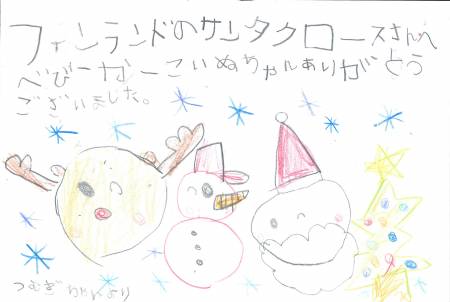 フィンランドのサンタクロースさんへ
べびーがーこいぬちゃんありがとう
ございました。
つむぎちゃんより